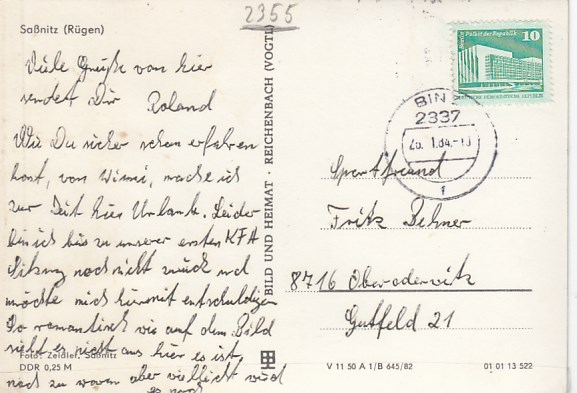 2355
Saßnitz (Rügen)
Viele Grüße von hier
sendet Dir Roland
Wie Du sicher schon erfahren
hast, von Winni, mache ich
zur Zeit hier Urlaub. Leider
bin ich bis zu unserer ersten KFA
Sitzung noch nicht zurück und
möchte mich hiermit entschuldigen
So romantisch wie auf dem Bild
sieht es nicht aus hier es ist
Foto: Zeidler, Saßnitz
DDR 0,25 M
noch zu warm aber vielleicht wird
es noch
BILD UND HEIMAT · REICHENBACH (VOGTL)
Palast der Republik 10
DEUTSCHE DEMOKRATISCHE REPUBLIK
BINZ
2337
1
Sportfreund
Fritz Behner
8716 Oberoderwitz
Gutfeld 21
V 11 50 A 1/B 645/82
01 01 13 522